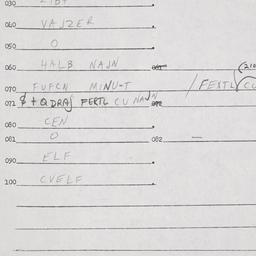 030 ZIBT
040 VAJZER
050 O
060 HALB NAJN
070 FUFCN MINU-T / FERTL CU
072 + Q DRAJ FERTL CU NAJN
080 CEN
081 O 082 —
090 ELF
100 CVELF